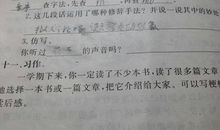 查字法,先查
2.这几段话运用了哪种修辞手法?并说一说其中的妙
3.仿写。
你听过 的声音吗?
十一、习作。
一学期下来,你一定读了不少本书,读了很多篇文章
地选择一本书或一篇文章,把它介绍给大家。可以写梗
读后感。